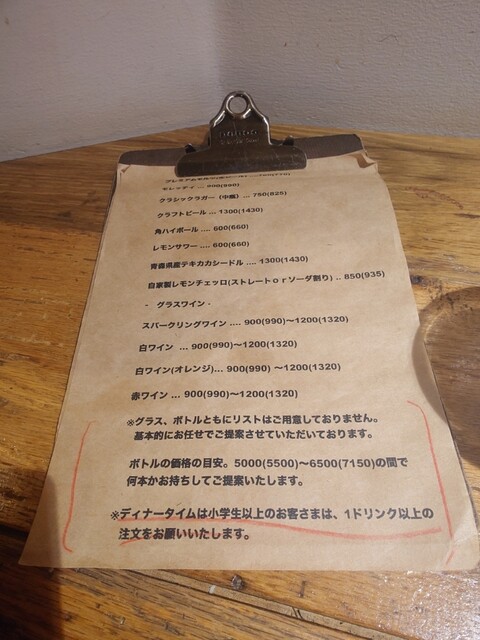 モレッティ … 900(990)
クラシックラガー (中瓶) … 750(825)
クラフトビール … 1300(1430)
角ハイボール …. 600(660)
レモンサワー …. 600(660)
青森県産テキカカシードル …. 1300(1430)
自家製レモンチェッロ(ストレートorソーダ割り) .. 850(935)
- グラスワイン -
スパークリングワイン …. 900(990)～1200(1320)
白ワイン … 900(990)～1200(1320)
白ワイン(オレンジ)… 900(990) ～1200(1320)
赤ワイン … 900(990)～1200(1320)
※グラス、ボトルともにリストはご用意しておりません。
基本的にお任せでご提案させていただいております。
ボトルの価格の目安。5000(5500)～6500(7150)の間で
何本かお持ちしてご提案いたします。
※ディナータイムは小学生以上のお客さまは、1ドリンク以上の
注文をお願いいたします。